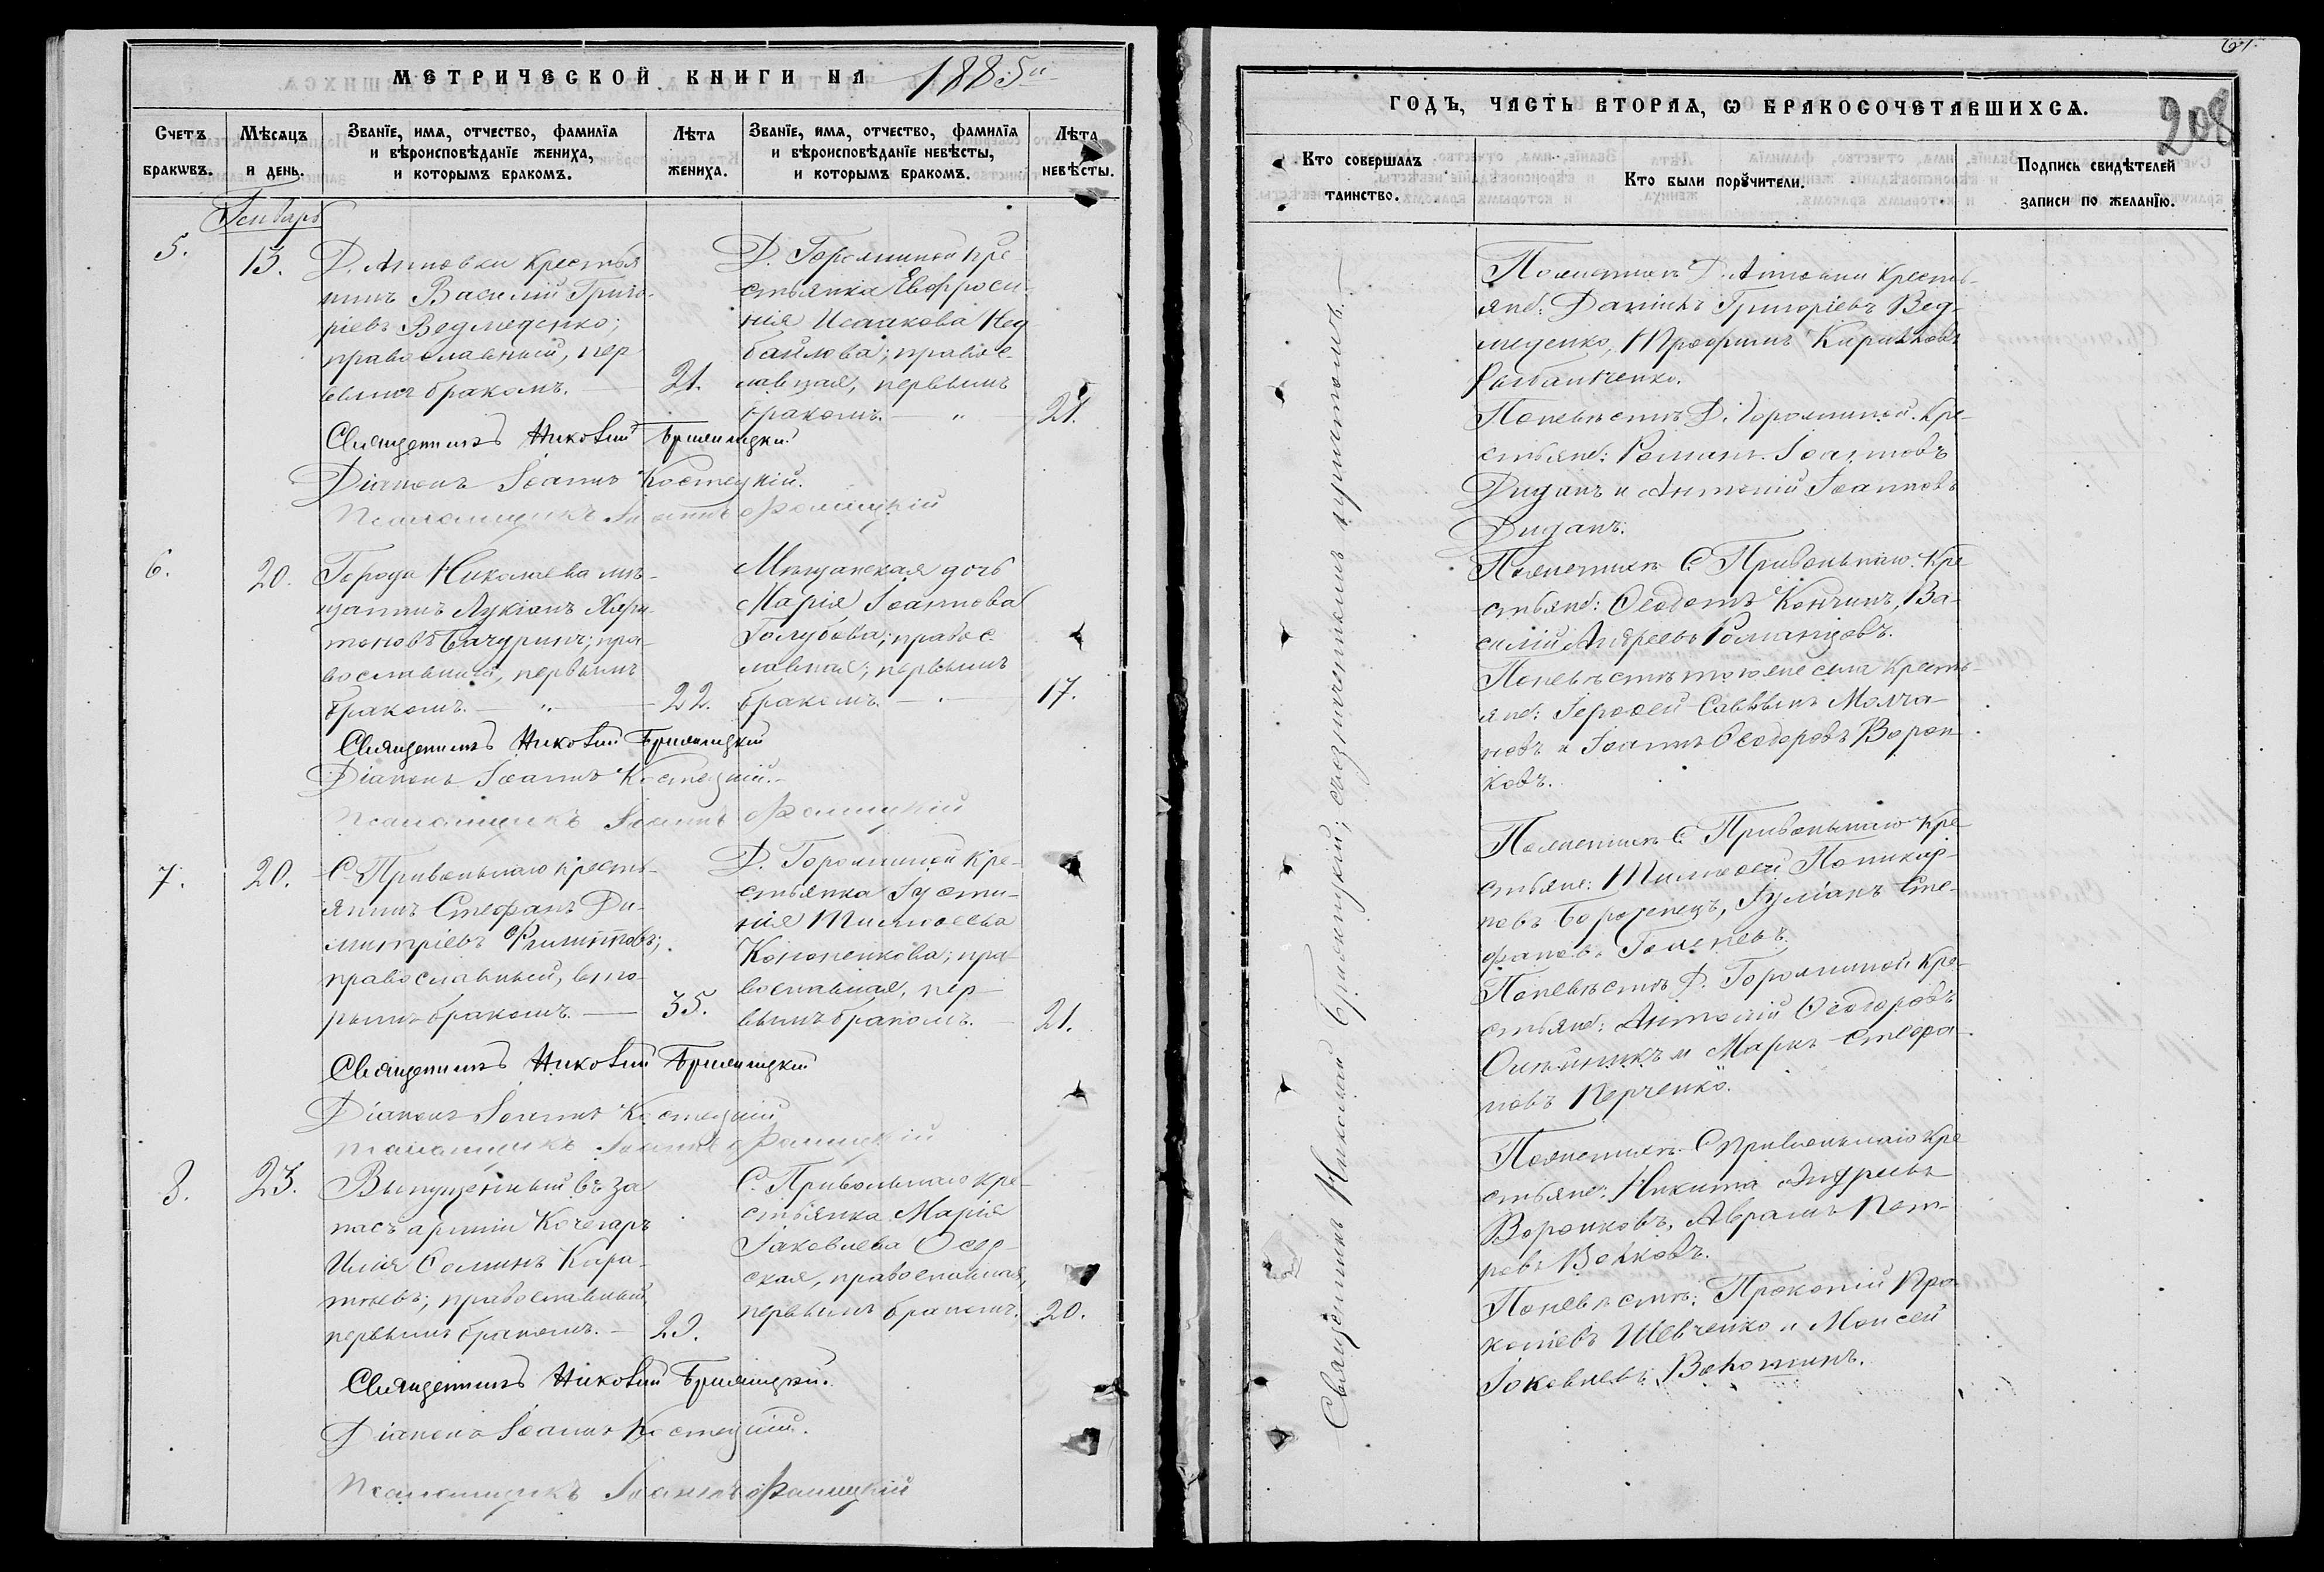 МЕТРИЧЕСКОЙ КНИГИ НА 1885й
Счетъ браковъ.
Мѣсяцъ и день.
Званїе, имя, отчество, фамилїя и вѣроисповѣданїе жениха, и которымъ бракомъ.
Лѣта жениха.
Званїе, имя, отчество, фамилїя и вѣроисповѣданїе невѣсты, и которымъ бракомъ.
Лѣта невѣсты.
Генварь
5.
13.
Д. Антовки крестья
нинъ Василій Григо-
ріевъ Ведмеденко;
православный, пер
вымъ бракомъ.
21.
Д. Горожиной кре
стьянка Евфроси
нія Исаакова Нед
байлова; правос
лавная, первымъ
бракомъ. — „ —
21.
Священникъ Николай
Діаконъ Іоаннъ Костецкій.
Псаломщикъ Іоаннъ
6.
20.
Города Николаева мѣ-
щанинъ Лукіанъ Хари
тоновъ Бачуринъ; пра-
вославный, первымъ
бракомъ. — „ —
22.
Мѣщанская дочь
Марія Іоаннова
Голубова; правос
лавная; первымъ
бракомъ.
17.
Священникъ Николай
Діаконъ Іоаннъ Костецкій.
Псаломщикъ Іоаннъ
7.
20.
С. Привольнаго кресть-
янинъ Стефанъ Ди-
митріевъ Филипповъ;
православный, вто-
рымъ бракомъ. —
35.
Д. Горожиной кре-
стьянка Іусти-
нія Тимоѳеева
Кононенкова; пра
вославная, пер-
вымъ бракомъ.
21.
Священникъ Николай
Діаконъ Іоаннъ Костецкій
Псаломщикъ Іоаннъ
8.
23.
Выпущенный въ за
пасъ арміи Кочегаръ
Илія Ѳоминъ
православный,
первымъ бракомъ. —
29.
С. Привольнаго кре-
стьянка Марія
Іаковлева Осад-
ская, православная,
первымъ бракомъ.
20.
Священникъ Николай
Діаконъ Іоаннъ Костецкій.
Псаломщикъ Іоаннъ
208
ГОДЪ, ЧАСТЬ ВТОРАЯ, Ѡ БРАКОСОЧЕТАВШИХСЯ.
Кто совершалъ таинство.
Кто были порꙋчители.
Подпись свидѣтелей записи по желанїю.
Священникъ Николай съ причтомъ.
По женихѣ Д. Антовки кресть-
яне: Даніилъ Григоріевъ Вед-
меденко, Трофимъ
По невѣстѣ Д. Горожиной кре-
стьяне: Романъ Іоанновъ
Диданъ и Антоній Іоанновъ
Диданъ.
По женихѣ С. Привольнаго кре
стьяне: Ѳеодотъ Кончинъ, Ва-
силій Андреевъ Романцовъ.
По невѣстѣ того же села кресть-
яне: Іероѳей Саввинъ Молча-
новъ и Іоаннъ Ѳеодоровъ Ворон
ковъ.
По женихѣ С. Привольнаго кре
стьяне: Тимоѳей Поликар-
повъ Іуліанъ Сте-
фановъ
По невѣстѣ Д. Горожиной кре-
стьяне: Антоній Ѳеодоровъ
Олейникъ и Маркъ Стефа-
новъ Перченко.
По женихѣ С. Привольнаго кре
стьяне: Никита Андреевъ
Воронковъ, Аврамъ Пет-
ровъ Волковъ.
По невѣстѣ: Прокопій Про
копіевъ Шевченко и Моисей
Іаковлевъ